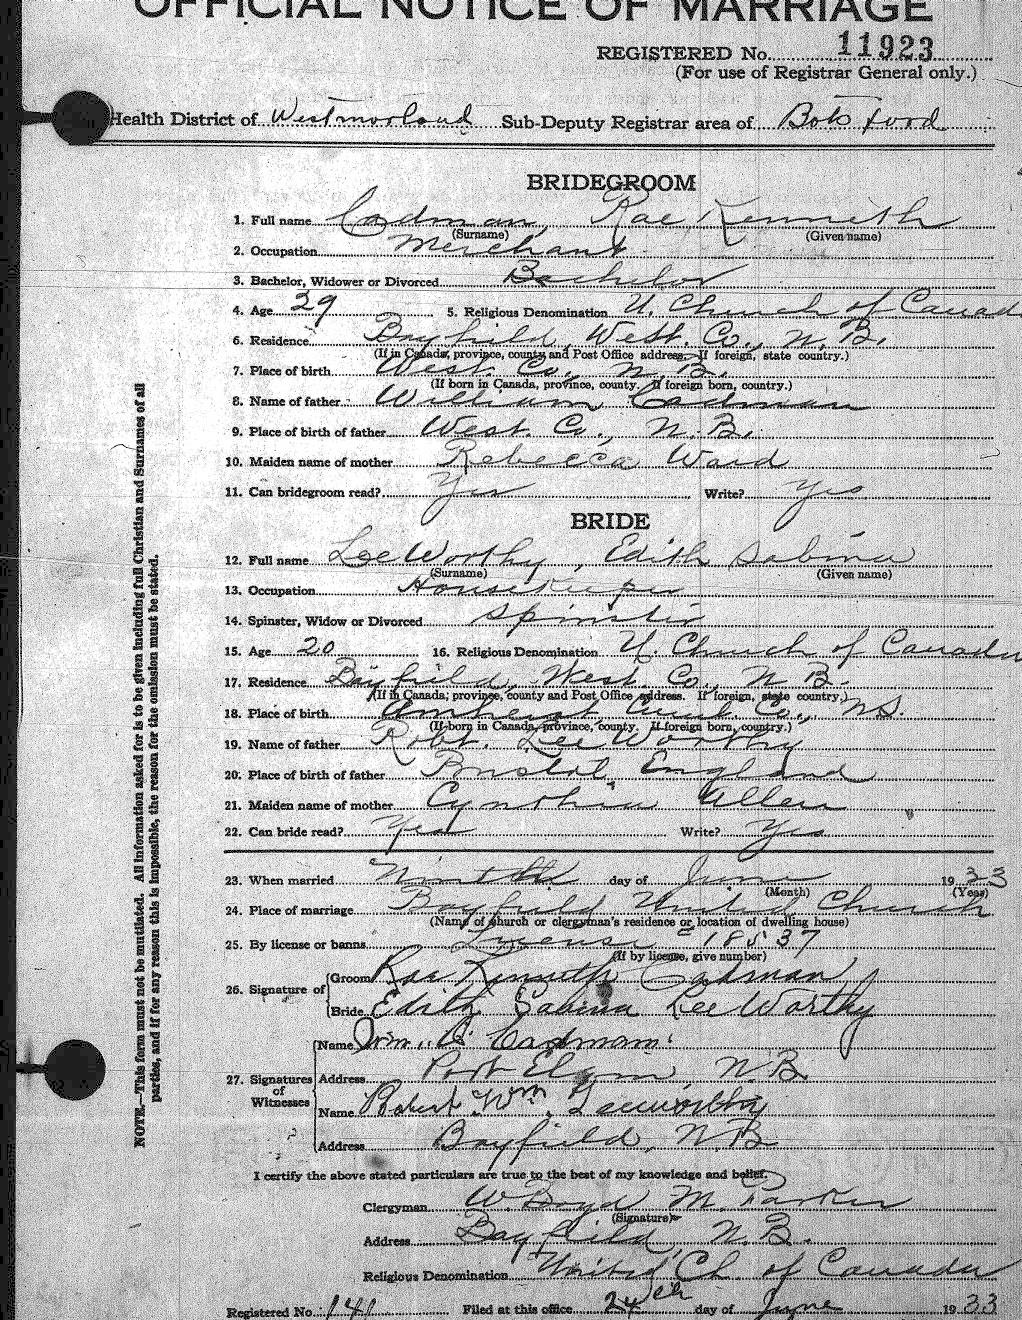 OFFICIAL NOTICE OF MARRIAGE
REGISTERED No. 11923
(For use of Registrar General only.)
Health District of Westmorland Sub-Deputy Registrar area of Botsford
BRIDEGROOM
1. Full name Cadman, Rae Kenneth
(Surname) (Given name)
2. Occupation Merchant
3. Bachelor, Widower or Divorced Bachelor
4. Age 29 5. Religious Denomination U. Church of Canada
6. Residence Bayfield, West. Co., N.B.
(If in Canada, province, county and Post Office address. If foreign, state country.)
7. Place of birth West. Co., N.B.
(If born in Canada, province, county. If foreign born, country.)
8. Name of father William Cadman
9. Place of birth of father West. Co., N.B.
10. Maiden name of mother Rebecca Ward
11. Can bridegroom read? Yes Write? Yes
BRIDE
12. Full name LeeWorthy, Edith Sabina
(Surname) (Given name)
13. Occupation Housekeeper
14. Spinster, Widow or Divorced Spinster
15. Age 20 16. Religious Denomination U. Church of Canada
17. Residence Bayfield, West. Co., N.B.
(If in Canada, province, county and Post Office address. If foreign, state country.)
18. Place of birth Amherst Cum. Co., N.S.
(If born in Canada, province, county. If foreign born, country.)
19. Name of father Robt. LeeWorthy
20. Place of birth of father Bristol England
21. Maiden name of mother Cynthia Allen
22. Can bride read? Yes Write? Yes
23. When married Nineth day of June 1933
(Month) (Year)
24. Place of marriage Bayfield United Church
(Name of church or clergyman's residence or location of dwelling house)
25. By license or banns License 18537
(If by license, give number)
26. Signature of
Groom Rae Kenneth Cadman
Bride Edith Sabina LeeWorthy
27. Signatures of Witnesses
Name Wm. Cadman
Address Port Elgin, N.B.
Name Robert Wm. Leeworthy
Address Bayfield, N.B.
I certify the above stated particulars are true to the best of my knowledge and belief.
Clergyman W. Boyd M. Parker
(Signature)
Address Bayfield, N.B.
Religious Denomination United Ch. of Canada
Registered No. 141 Filed at this office 24th day of June 1933
NOTE.—This form must not be mutilated. All information asked for is to be given including full Christian and Surnames of all
parties, and if for any reason this is impossible, the reason for the omission must be stated.